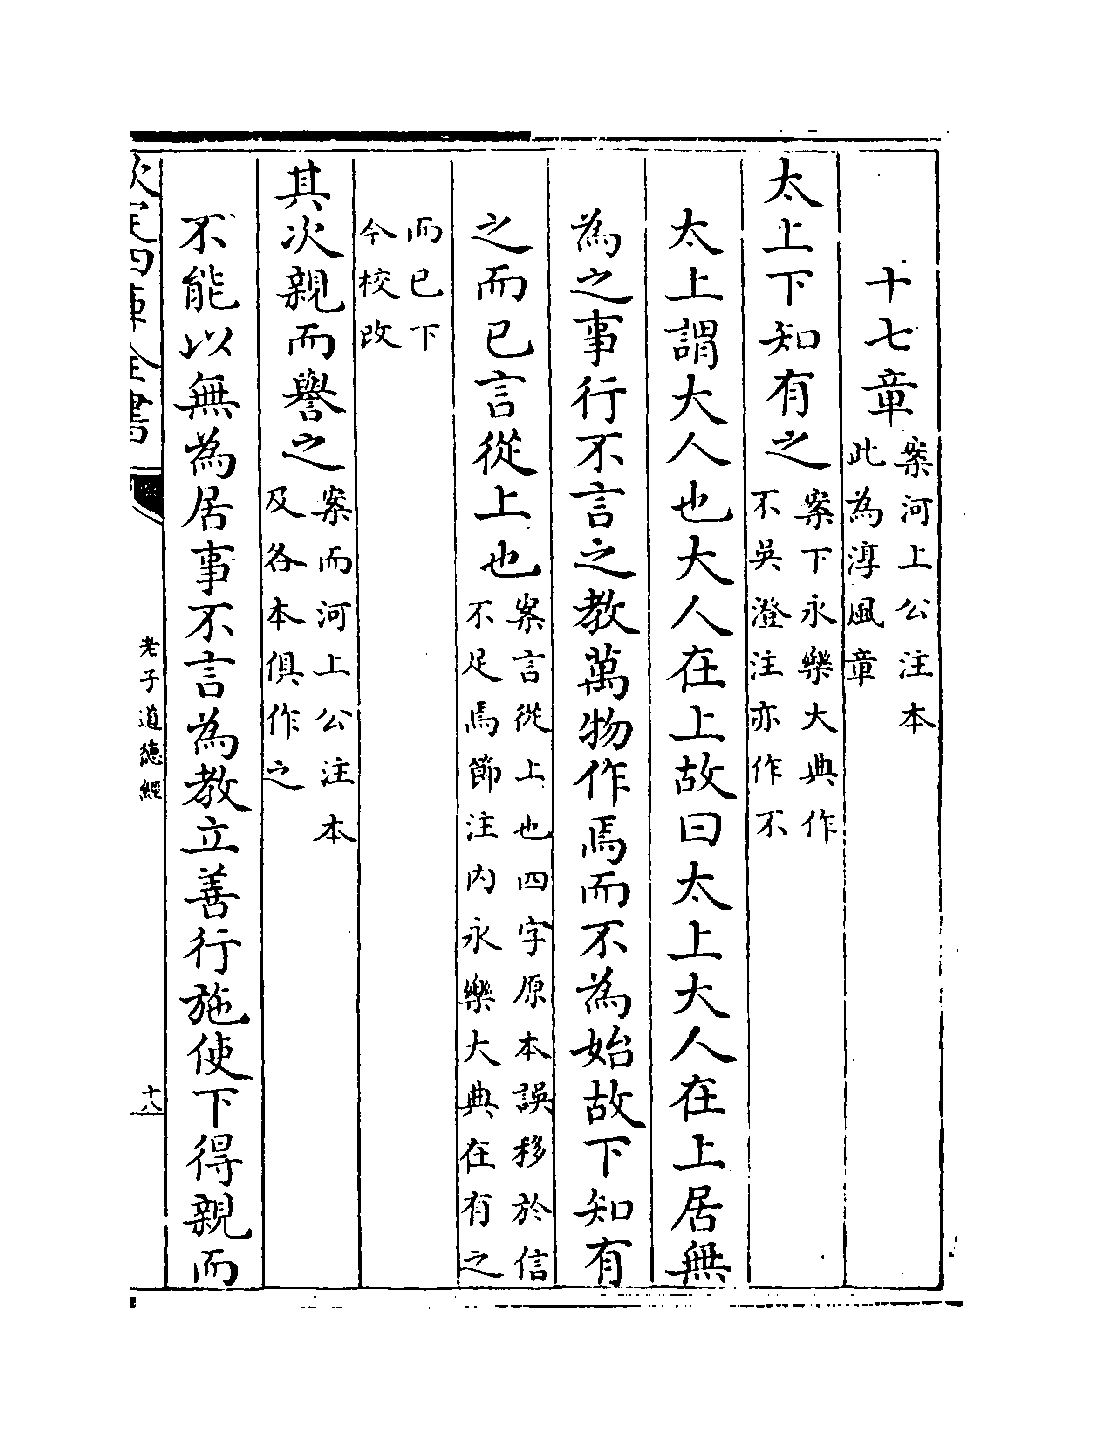 十七章案河上公注本此為淳風章
太上下知有之案下永樂大典作不吳澄注亦作不
太上謂大人也大人在上故曰太上大人在上居無
為之事行不言之教萬物作焉而不為始故下知有
之而已言從上也案言從上也四字原本誤移於信不足焉節注内永樂大典在有之
而已下今校改
其次親而譽之案而河上公注本及各本俱作之
不能以無為居事不言為教立善行施使下得親而
欽定四庫全書
老子道德經
十八